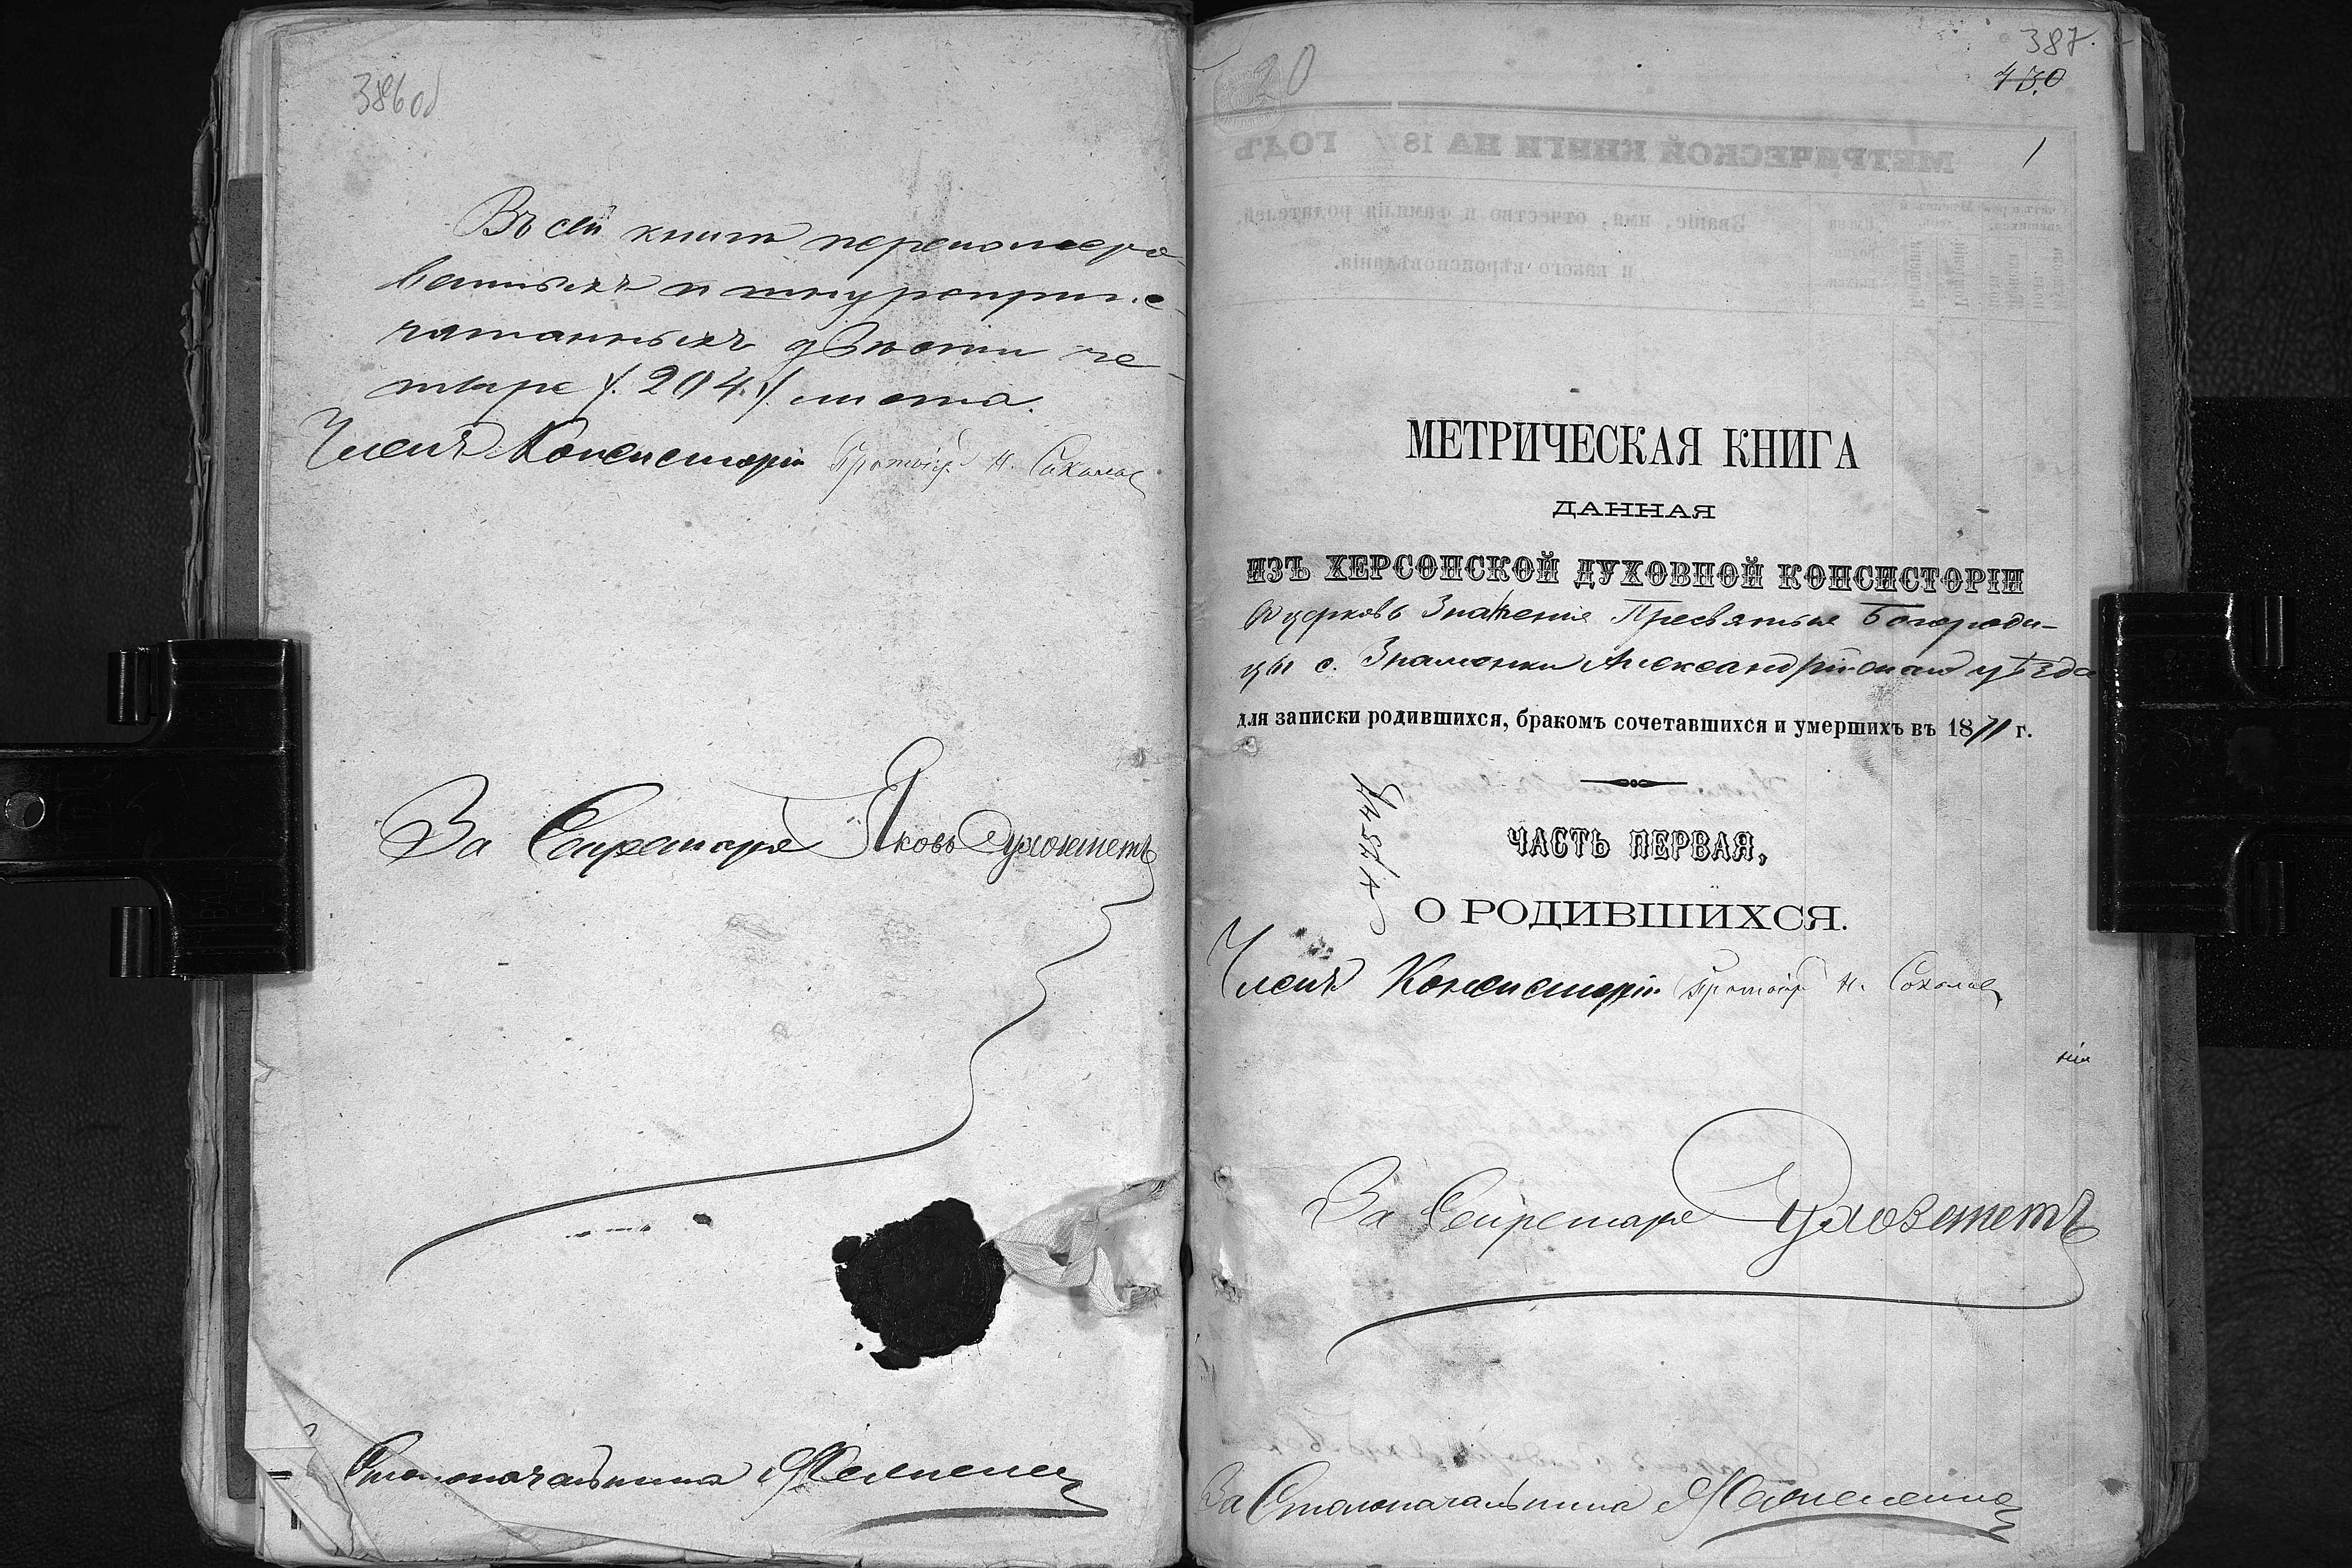 386об
Въ сей книгѣ перенумеро-
ванныхъ и шнуроприпе-
чатанныхъ двѣсти че-
тыре /:204:/ листа.
Членъ Консисторіи Протоіер. Н. Соколов
За Секретаря Яковъ
Столоначальника
20
387.
430
1
МЕТРИЧЕСКОЙ КНИГИ НА 187 ГОДЪ
Званіе, имя, отчество и фамилія родителей,
и какого вѣроисповѣданія.
МЕТРИЧЕСКАЯ КНИГА
ДАННАЯ
ИЗЪ ХЕРСОНСКОЙ ДУХОВНОЙ КОНСИСТОРІИ
въ церковь Знаменія Пресвятыя Богороди-
цы с. Знаменки Александрійскаго уѣзда
для записки родившихся, бракомъ сочетавшихся и умершихъ въ 1871 г.
ЧАСТЬ ПЕРВАЯ,
О РОДИВШИХСЯ.
Членъ Консисторіи Протоіер. Н. Соколов
нія
За Секретаря
За Столоначальника